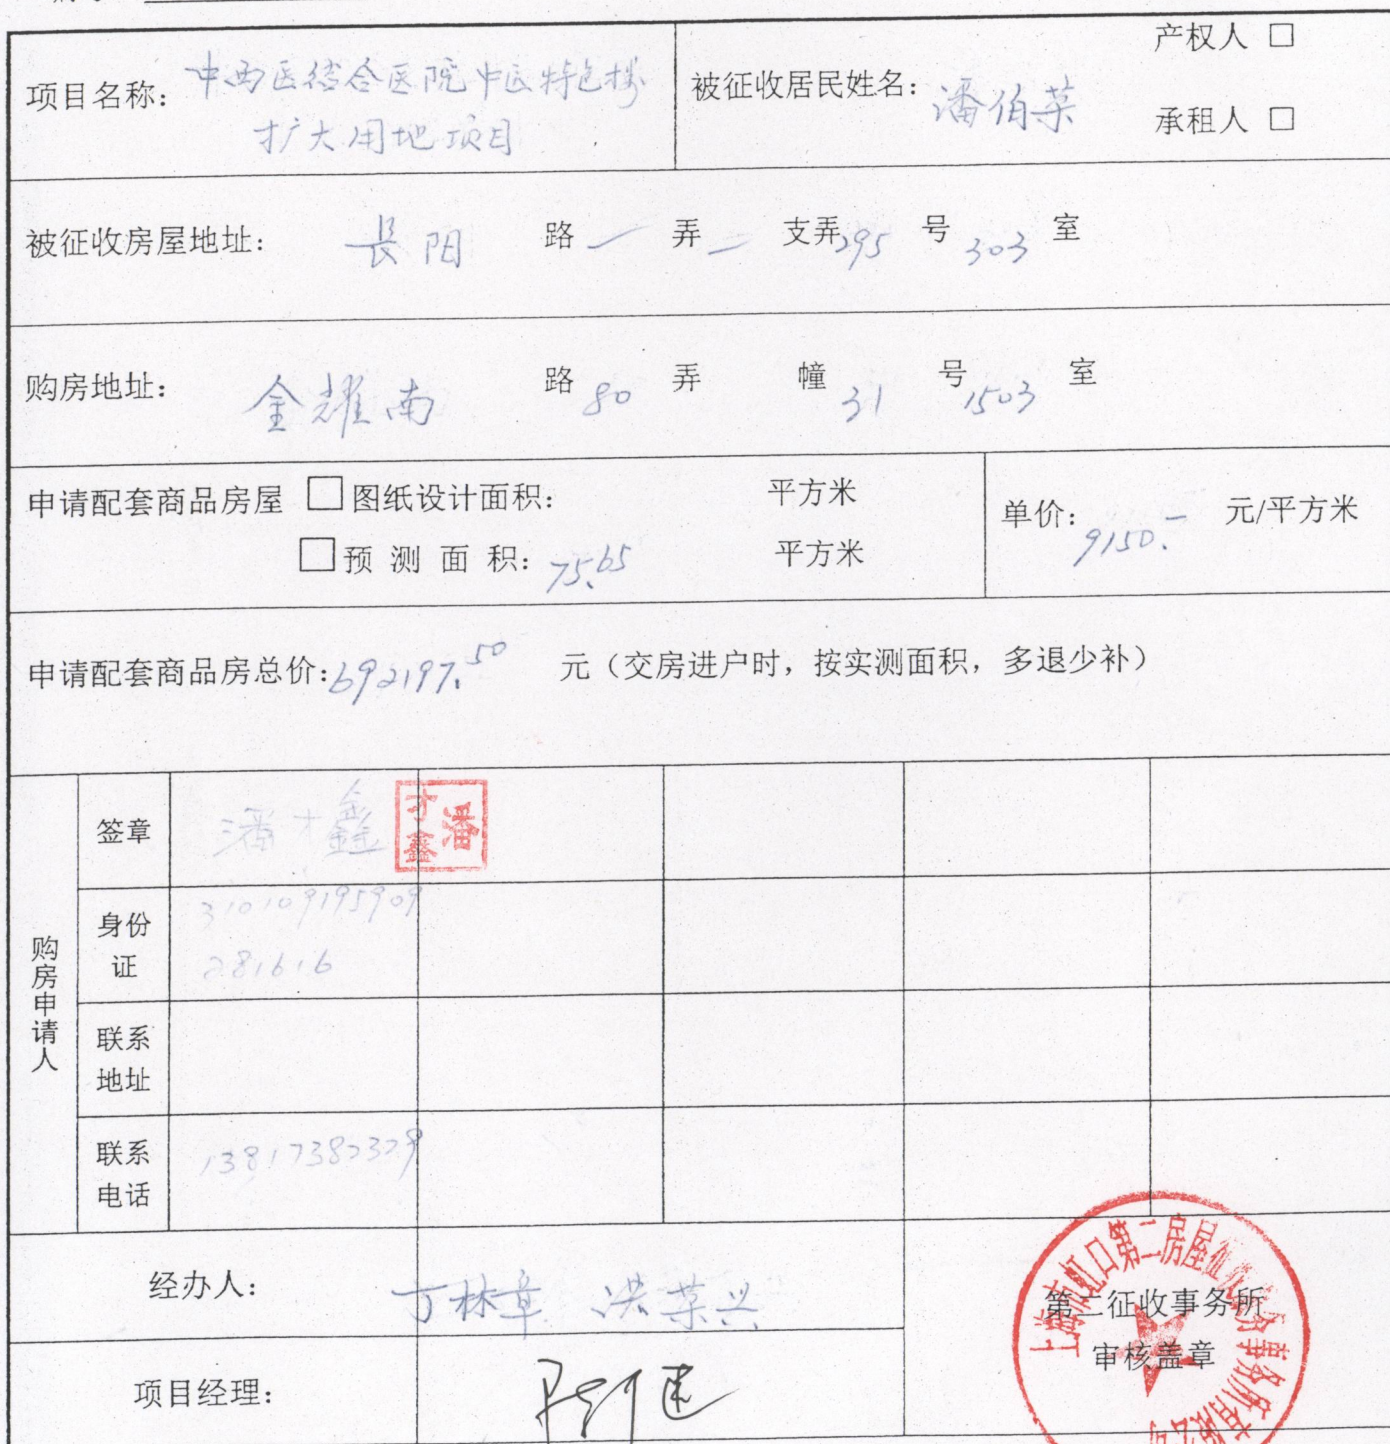 项目名称：中西医结合医院中医特色楼
扩大用地项目
被征收居民姓名：潘伯菜
产权人 □
承租人 □
被征收房屋地址：长阳 路 一 弄 一 支弄 295 号 303 室
购房地址：金耀南 路 80 弄 幢 31 号 1503 室
申请配套商品房屋 □图纸设计面积： 平方米
□预 测 面 积：75.65 平方米
单价：9150.- 元/平方米
申请配套商品房总价：692197.50 元（交房进户时，按实测面积，多退少补）
购房申请人
签章 潘才鑫 潘才鑫
身份证 310109195909
281616
联系地址
联系电话 13817382329
经办人： 丁林章 洪菜兴
第二征收事务所
审核盖章
上海市虹口第二房屋征收服务事务所有限公司
项目经理：